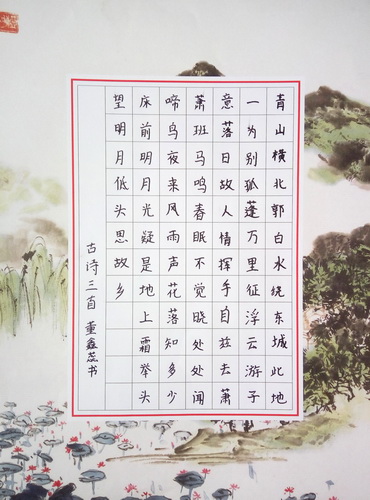 青山横北郭白水绕东城此地
一为别孤蓬万里征浮云游子
意落日故人情挥手自兹去萧
萧班马鸣春眠不觉晓处处闻
啼鸟夜来风雨声花落知多少
床前明月光疑是地上霜举头
望明月低头思故乡
古诗三首 董鑫蕊书